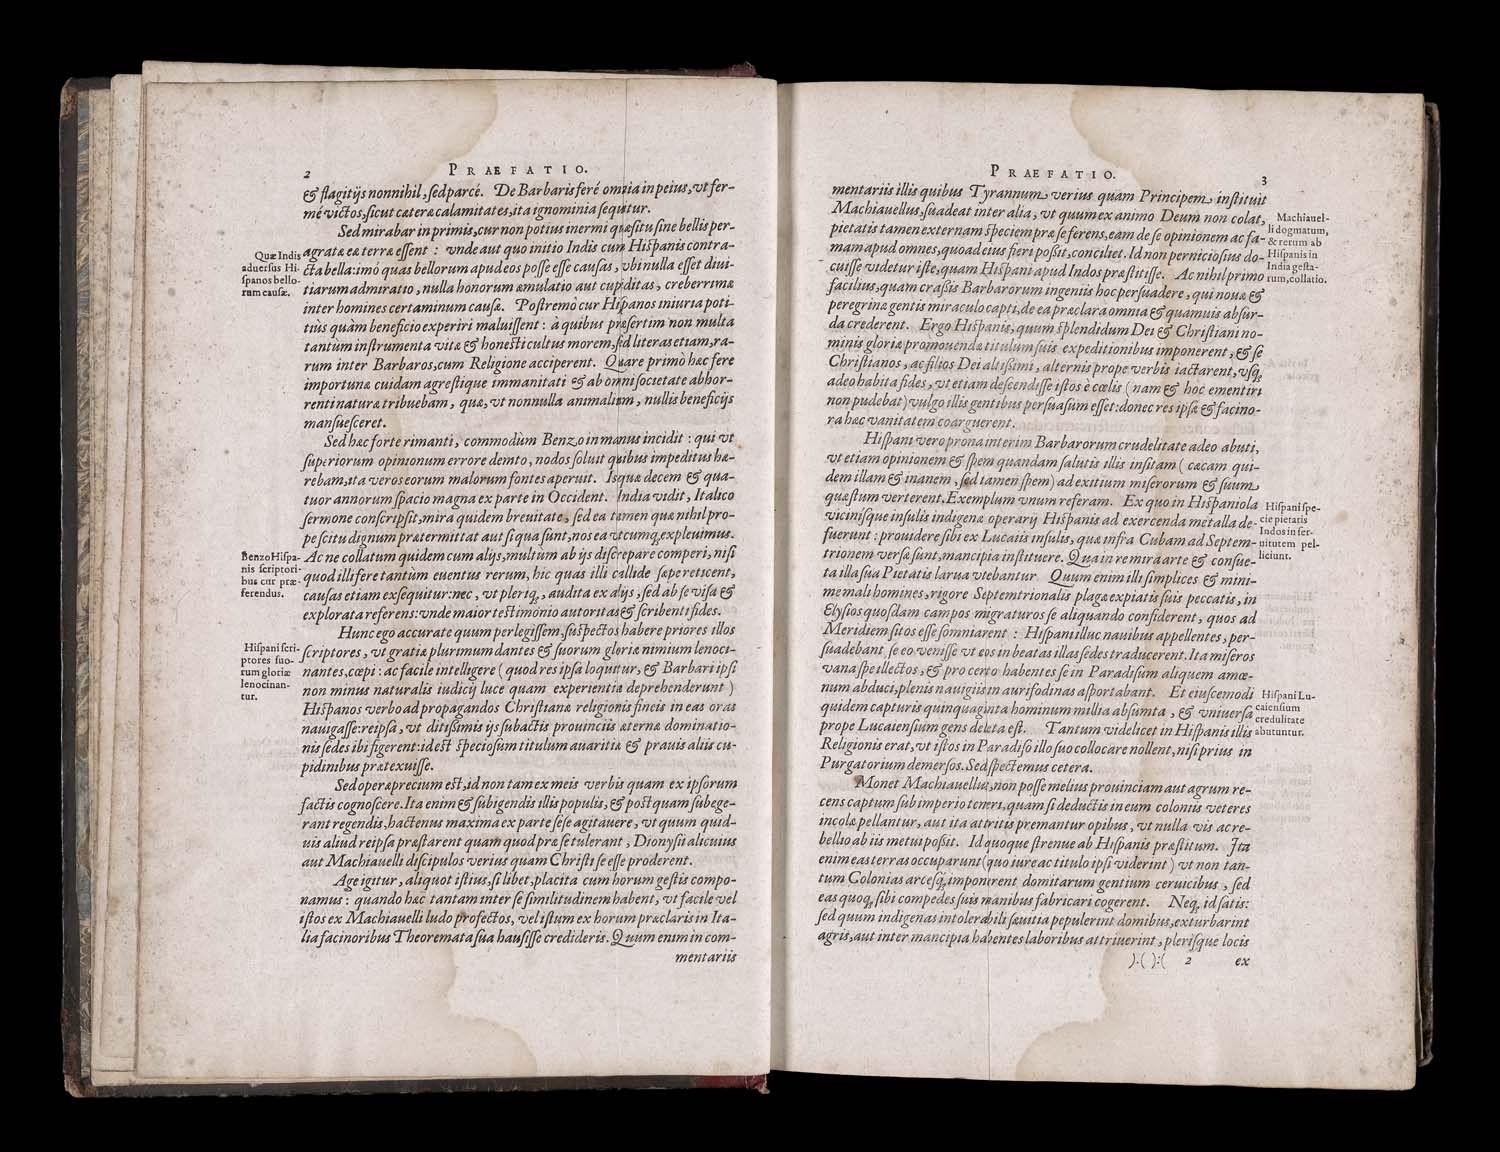 2
PRAEFATIO.
& flagitijs nonnihil, sed parcé. De Barbaris feré omnia in peius, vt fer-
mé victos, sicut cæteræ calamitates, ita ignominia sequitur.
Sed mirabar in primis, cur non potius inermi quæsitu sine bellis per-
agratæ eæ terræ essent : vnde aut quo initio Indis cum Hispanis contra-
cta bella: imò quas bellorum apud eos posse esse causas, vbi nulla esset diui-
tiarum admiratio, nulla honorum æmulatio aut cupiditas, creberrimæ
inter homines certaminum causæ. Postremò cur Hispanos iniuria poti-
tiùs quàm beneficio experiri maluissent : à quibus præsertim non multa
tantùm instrumenta vitæ & honesti cultus morem, sed literas etiam, ra-
rum inter Barbaros, cum Religione acciperent. Quare primò hæc fere
importunæ cuidam agrestique immanitati & ab omni societate abhor-
renti naturæ tribuebam, quæ, vt nonnulla animalium, nullis beneficijs
mansuesceret.
Sed hæc forte rimanti, commodùm Benzo in manus incidit : qui vt
superiorum opinionum errore demto, nodos soluit quibus impeditus hæ-
rebam, ita veros eorum malorum fontes aperuit. Isquæ decem & qua-
tuor annorum spacio magna ex parte in Occident. India vidit, Italico
sermone conscripsit, mira quidem breuitate, sed ea tamen quæ nihil pro-
pe scitu dignum prætermittat aut si qua sunt, nos ea vtcumq, expleuimus.
Ac ne collatum quidem cum alijs, multùm ab ijs discrepare comperi, nisi
quod illi fere tantùm euentus rerum, hic quas illi callide sæpe reticent,
causas etiam exsequitur: nec, vt pleriq, audita ex alijs, sed ab se visa &
explorata referens: vnde maior testimonio autoritas & scribenti fides.
Hunc ego accurate quum perlegissem, suspectos habere priores illos
scriptores, vt gratiæ plurimum dantes & suorum gloriæ nimium lenoci-
nantes, cœpi : ac facile intelligere ( quod res ipsa loquitur, & Barbari ipsi
non minus naturalis iudicij luce quam experientia deprehenderunt )
Hispanos verbo ad propagandos Christianæ religionis fineis in eas oras
nauigasse: reipsa, vt ditissimis ijs subactis prouinciis æternæ dominatio-
nis sedes ibi figerent: idest speciosum titulum auaritiæ & prauis aliis cu-
pidinibus prætexuisse.
Sed operæprecium est, id non tam ex meis verbis quam ex ipsorum
factis cognoscere. Ita enim & subigendis illis populis, & postquam subege-
rant regendis, hactenus maxima ex parte sese agitauere, vt quum quid-
uis aliud reipsa præstarent quam quod præ se tulerant, Dionysii alicuius
aut Machiauelli discipulos verius quam Christi se esse proderent.
Age igitur, aliquot istius, si libet, placita cum horum gestis compo-
namus : quando hæc tantam inter se similitudinem habent, vt facile vel
istos ex Machiauelli ludo profectos, vel istum ex horum præclaris in Ita-
lia facinoribus Theoremata sua hausisse credideris. Quum enim in com-
mentariis
Quæ Indis
aduersus Hi-
spanos bello-
rum causæ.
Benzo Hispa-
nis scriptori-
bus cur præ-
ferendus.
Hispani scri-
ptores suo-
rum gloriæ
lenocinan-
tur.
PRAEFATIO.
3
mentariis illis quibus Tyrannum verius quàm Principem instituit
Machiauellus, suadeat inter alia, vt quum ex animo Deum non colat,
pietatis tamen externam speciem præ se ferens, eam de se opinionem ac fa-
mam apud omnes, quoad eius fieri possit, conciliet. Id non perniciosius do-
cuisse videtur iste, quam Hispani apud Indos præstitisse. Ac nihil primo
facilius, quam crassis Barbarorum ingeniis hoc persuadere, qui nouæ &
peregrinæ gentis miraculo capti, de ea præclara omnia & quamuis absur-
da crederent. Ergo Hispanis, quum splendidum Dei & Christiani no-
minis gloriæ promouendæ titulum suis expeditionibus imponerent, & se
Christianos, ac filios Dei altissimi, alternis prope verbis iactarent, vsq,
adeo habita fides, vt etiam descendisse istos è cœlis ( nam & hoc ementiri
non pudebat ) vulgo illis gentibus persuasum esset: donec res ipsæ & facino-
ra hæc vanitatem coarguerent.
Hispani vero prona interim Barbarorum crudelitate adeo abuti,
vt etiam opinionem & spem quandam salutis illis insitam ( cæcam qui-
dem illam & inanem, sed tamen spem) ad exitium miserorum & suum
quæstum verterent. Exemplum vnum referam. Ex quo in Hispaniola
vicinisque insulis indigenæ operarij Hispanis ad exercenda metalla de-
fuerunt : prouidere sibi ex Lucaiis insulis, quæ infra Cubam ad Septem-
trionem versæ sunt, mancipia instituere. Qua in re mira arte & consue-
ta illa sua Pietatis larua vtebantur. Quum enim illi simplices & mini-
me mali homines, rigore Septemtrionalis plagæ expiatis suis peccatis, in
Elysios quosdam campos migraturos se aliquando considerent, quos ad
Meridiem sitos esse somniarent : Hispani illuc nauibus appellentes, per-
suadebant se eo venisse vt eos in beatas illas sedes traducerent. Ita miseros
vana spe illectos, & pro certo habentes se in Paradisum aliquem amœ-
num abduci, plenis nauigiis in aurifodinas asportabant. Et eiuscemodi
quidem capturis quinquaginta hominum millia absumta, & vniuersa
prope Lucaiensium gens deleta est. Tantum videlicet in Hispanis illis
Religionis erat, vt istos in Paradiso illo suo collocare nollent, nisi prius in
Purgatorium demersos. Sed spectemus cetera.
Monet Machiauellus, non posse melius prouinciam aut agrum re-
cens captum sub imperio teneri, quam si deductis in eum coloniis veteres
incolæ pellantur, aut ita attritis premantur opibus, vt nulla vis ac re-
bellio ab iis metui possit. Id quoque strenue ab Hispanis præstitum. Ita
enim eas terras occuparunt (quo iure ac titulo ipsi viderint ) vt non tan-
tum Colonias arcesq, imponerent domitarum gentium ceruicibus, sed
eas quoq, sibi compedes suis manibus fabricari cogerent. Neq, id satis:
sed quum indigenas intolerabili sæuitia pepulerint domibus, exturbarint
agris, aut inter mancipia habentes laboribus attriuerint, plerisque locis
).( ):( 2 ex
Machiauel-
li dogmatum,
& rerum ab
Hispanis in
India gesta-
rum, collatio.
Hispani spe-
cie pietatis
Indos in ser-
uitutem pel-
liciunt.
Hispani Lu-
caiensium
credulitate
abutuntur.